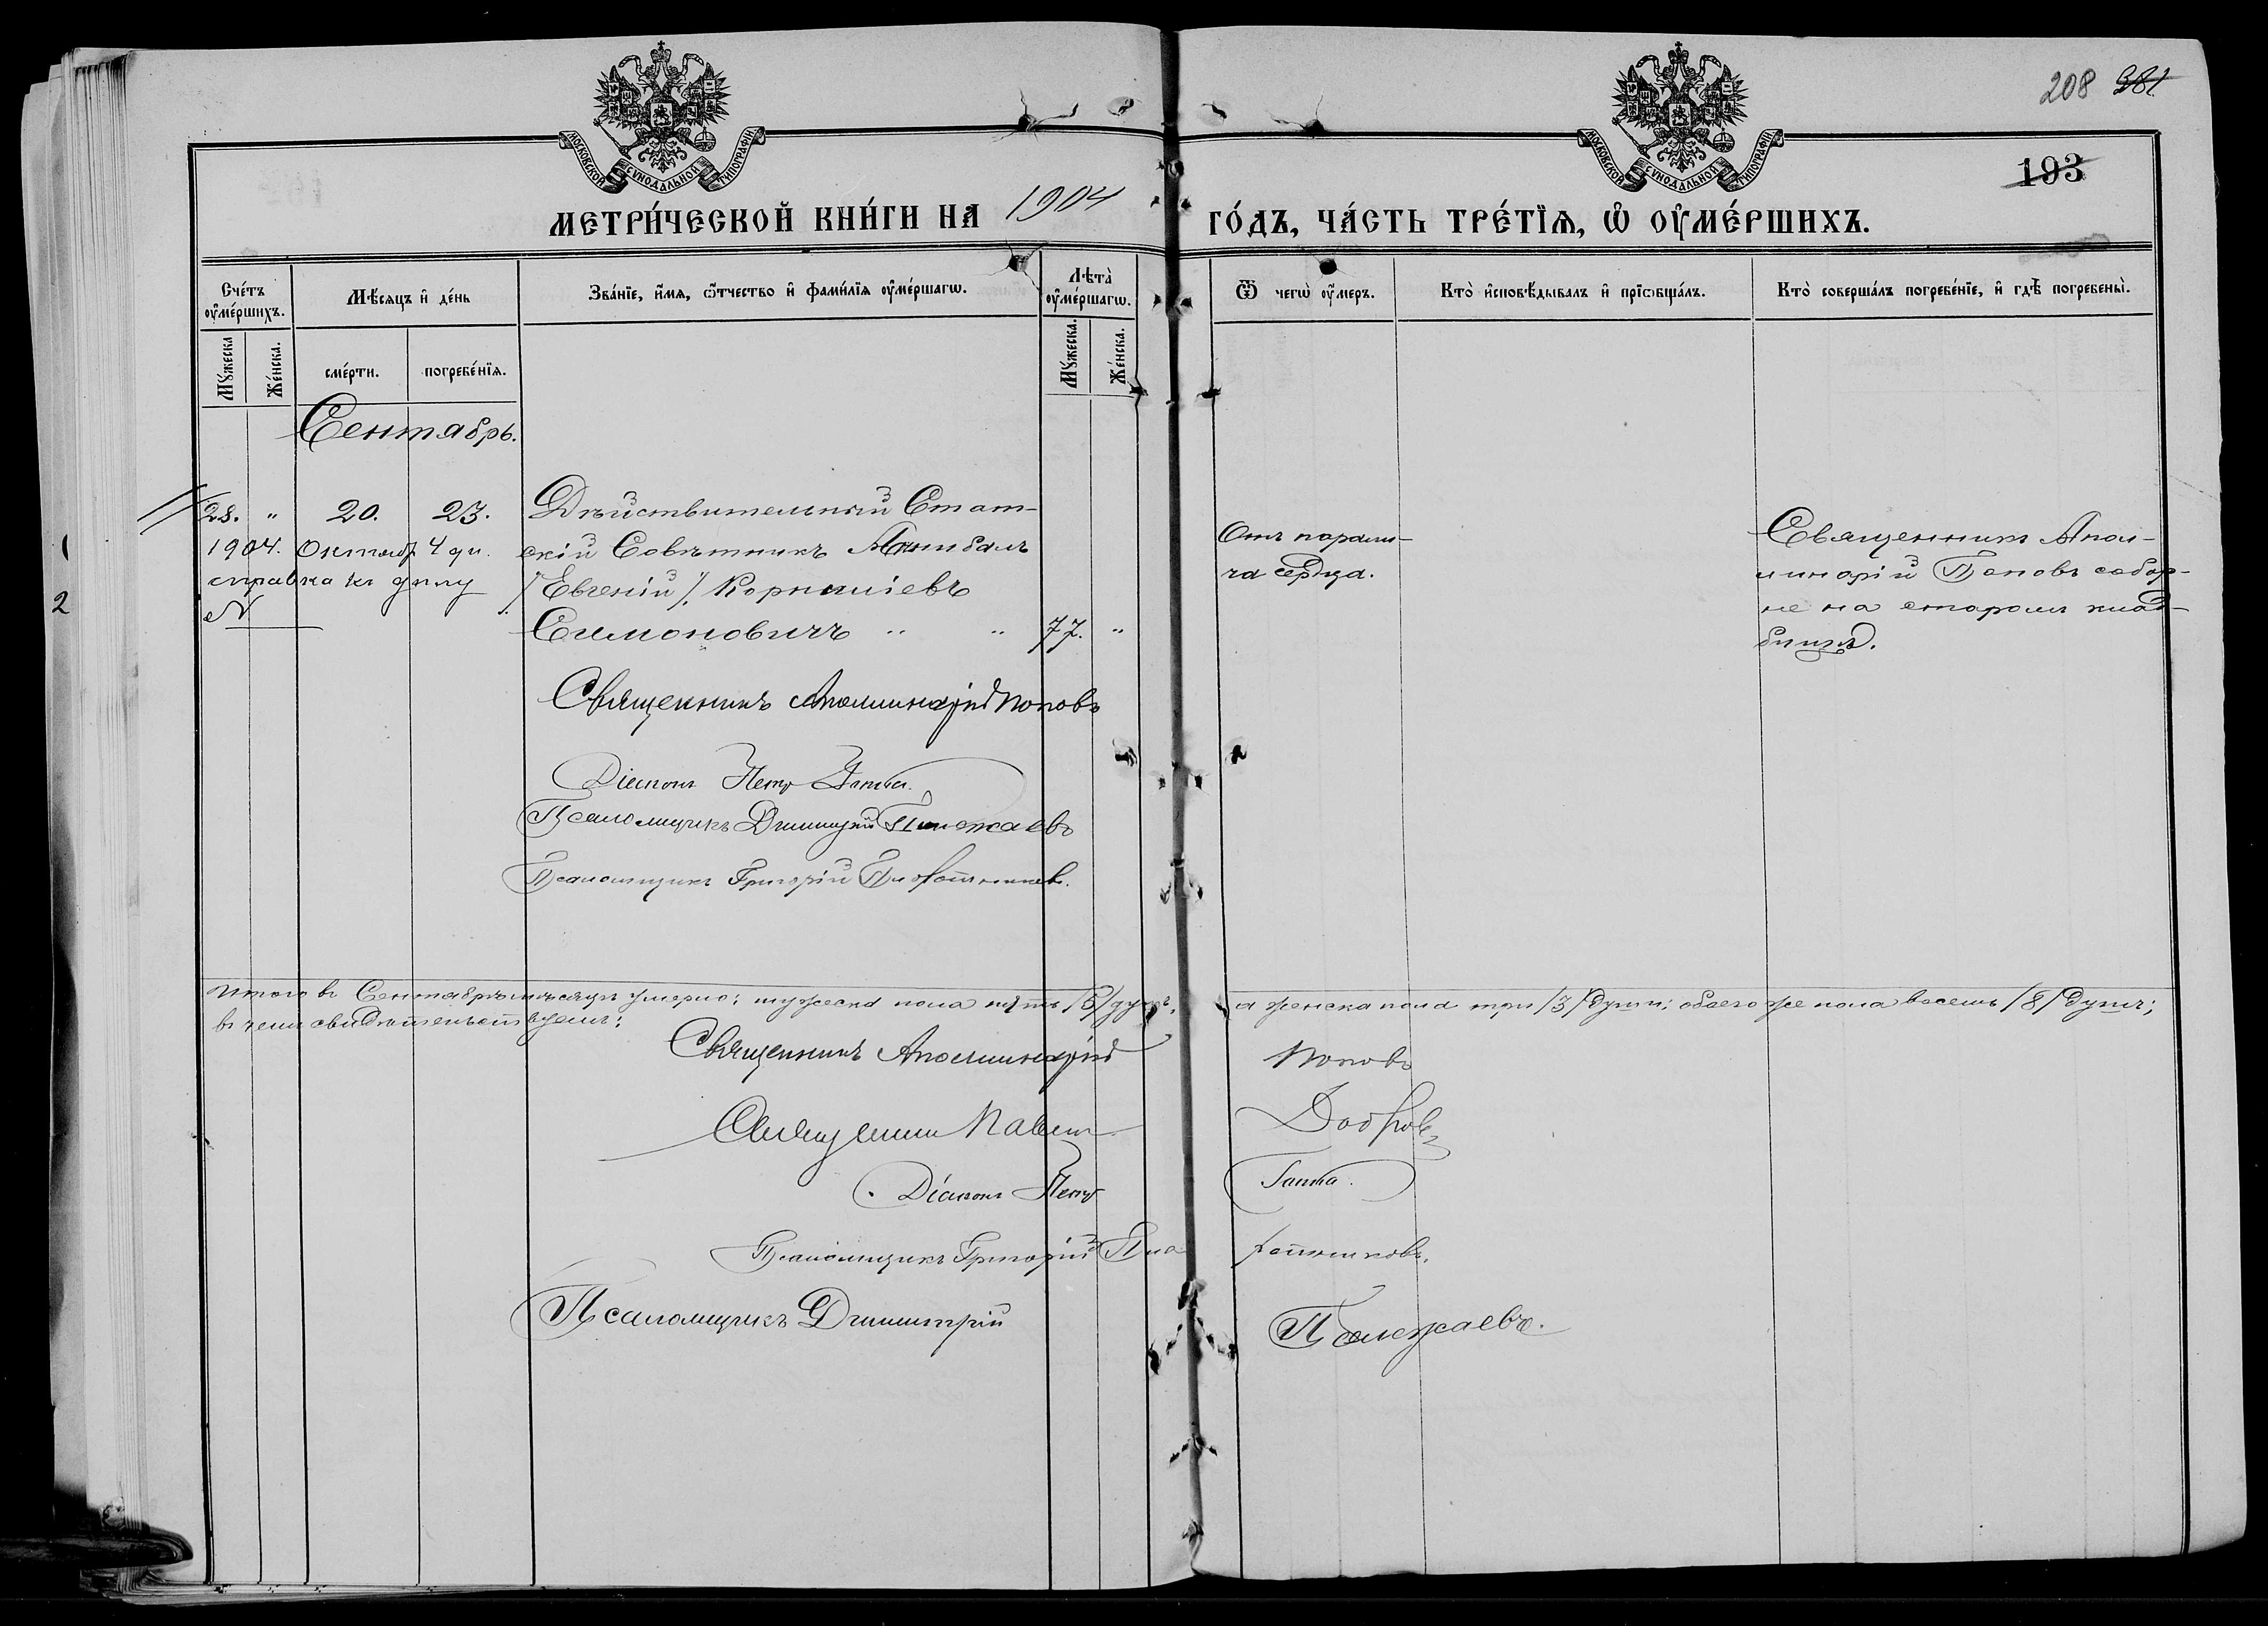 208 381
193
МОСКОВСКОЙ СѴНОДАЛЬНОЙ ТИПОГРАФІИ
МОСКОВСКОЙ СѴНОДАЛЬНОЙ ТИПОГРАФІИ
МЕТРИ́ЧЕСКОЙ КНИ́ГИ НА 1904 ГО́ДЪ, ЧА́СТЬ ТРЕ́ТЇѦ, Ѡ҆ ОУ҆МЕ́РШИХЪ.
Сче́тъ оу҆ме́ршихъ.
Мꙋ́жеска
Же́нска.
Мѣ́сяцъ и҆ де́нь
сме́рти.
погребе́нїѧ.
Зва́нїе, и҆́мѧ, ѻ҆́тчество и҆ фами́лїѧ оу҆ме́ршагѡ.
Лѣта̀ оу҆ме́ршагѡ.
Мꙋ́жеска.
Же́нска.
Ѿ чегѡ̀ оу҆́меръ.
Кто̀ и҆сповѣ́дывалъ и҆ прїѡбща́лъ.
Кто̀ соверша́лъ погребе́нїе, и҆ гдѣ̀ погребены̀.
Сентябрь.
28. " 20. 23.
1904. Октябр 4 дн.
справка къ дѣлу
N
Дѣйствительный Стат-
скій Совѣтникъ Аннибалъ
/Евгеній/ Корниліевъ
Симоновичъ " " 77. "
Отъ парали-
ча сердца.
Священникъ Апол-
линарій Поповъ собор-
не на старомъ клад-
бищѣ.
Священникъ Аполлинарій Поповъ
Діаконъ Петръ
Псаломщикъ Димитрій Полежаевъ
Псаломщикъ Григорій Плотниковъ.
Итого въ Сентябрѣ мѣсяцѣ умерло: мужеска пола пять /5/ душъ, а женска пола три /3/ души; обоего же пола восемь /8/ душъ;
въ чемъ свидѣтельствуемъ:
Священникъ Аполлинарій Поповъ
Священникъ Павелъ Добровъ
Діаконъ Петръ
Псаломщикъ Григорій Плотниковъ.
Псаломщикъ Димитрій Полежаевъ.
1
2